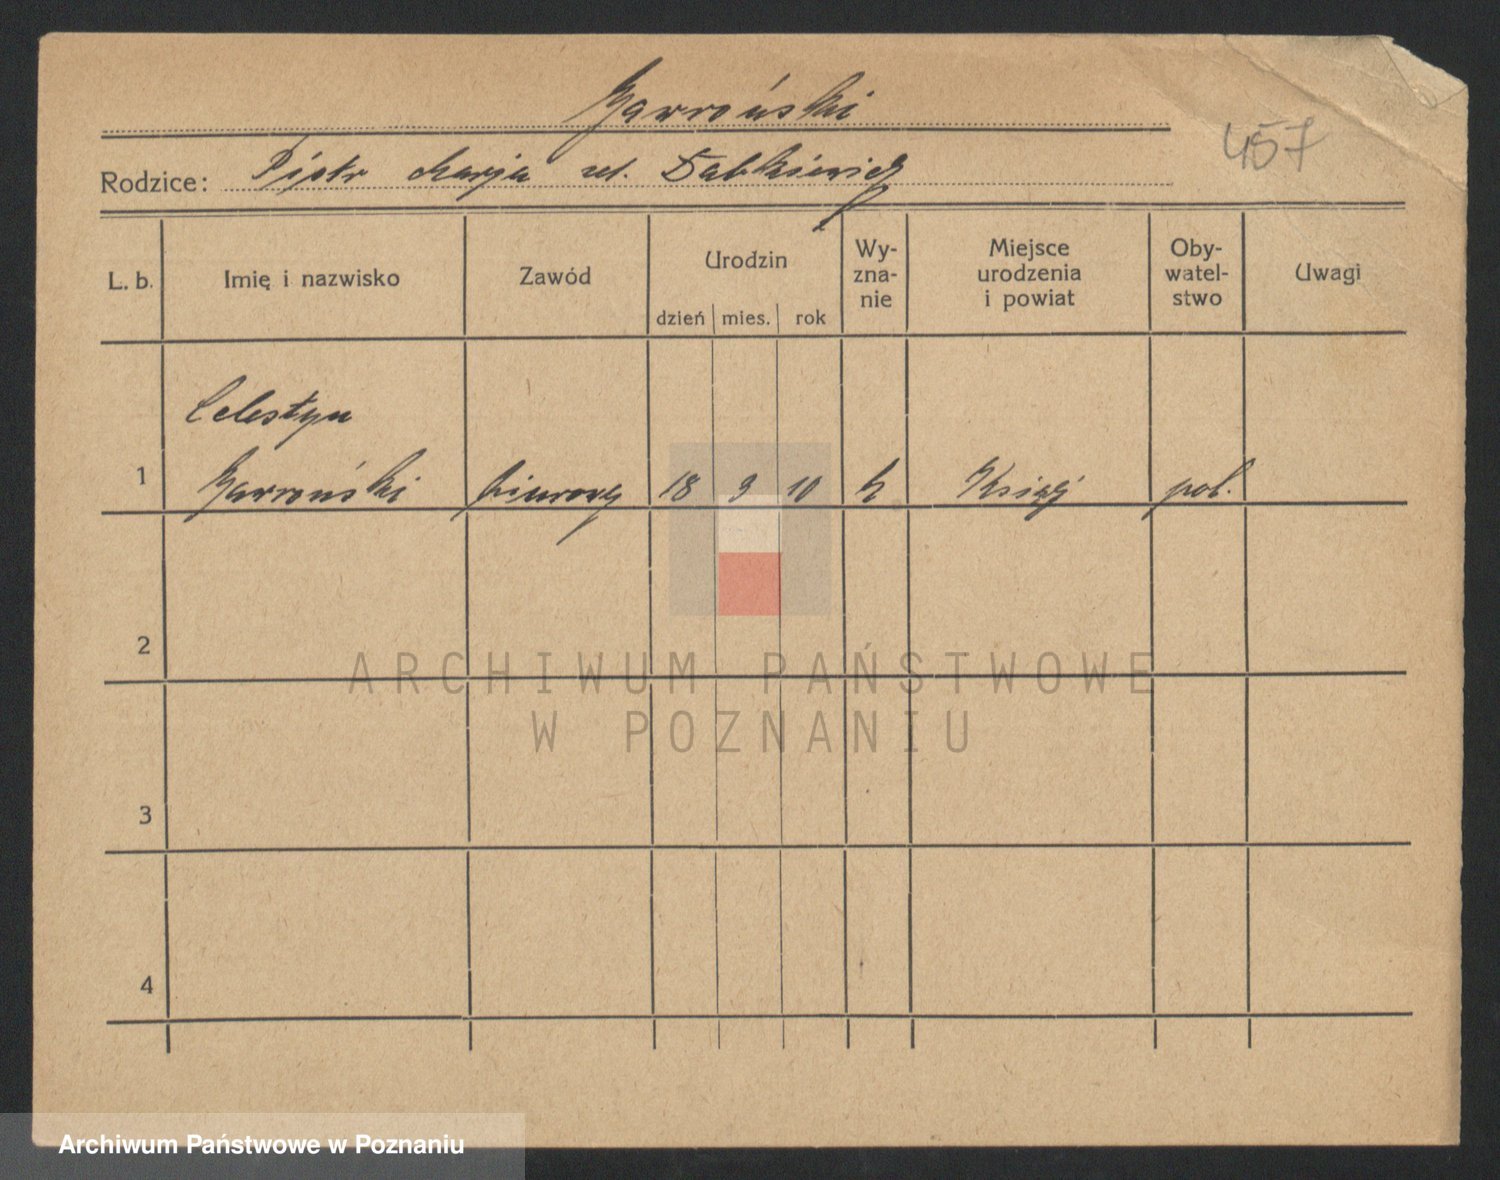 Gawroński
457
Rodzice: Piotr Marja ur. Dabkiewicz
L. b. Imię i nazwisko Zawód Urodzin dzień mies. rok Wy- zna- nie Miejsce urodzenia i powiat Oby- watel- stwo Uwagi
Celestyn
1 Gawroński biurowy 18 9 10 k Książ pol.
2
ARCHIWUM PAŃSTWOWE
W POZNANIU
3
4
Archiwum Państwowe w Poznaniu